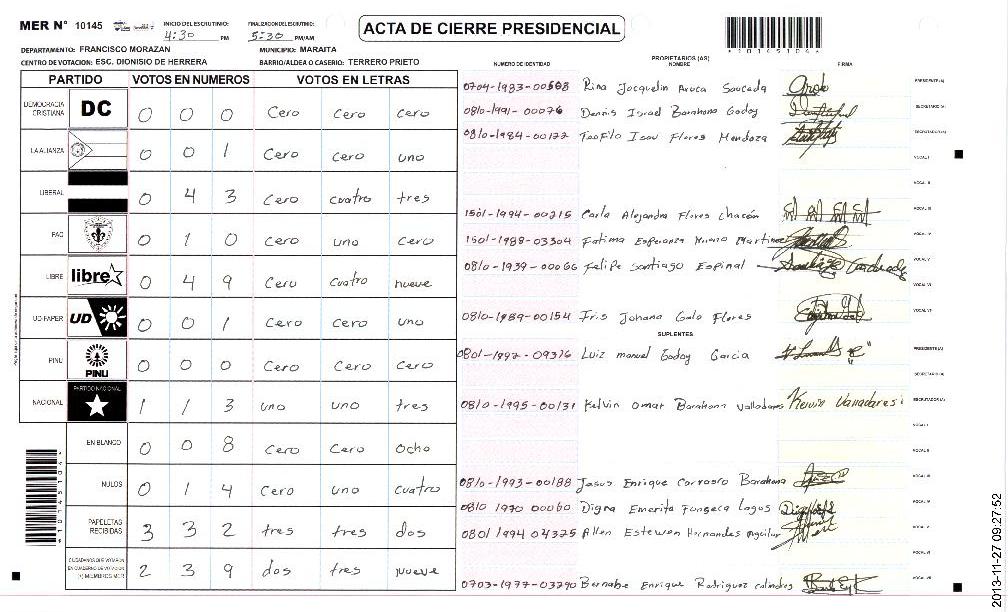 MER N° 10145
INICIO DEL ESCRUTINIO: 4:30 PM
FINALIZACION DEL ESCRUTINIO: 5:30 PM/AM
ACTA DE CIERRE PRESIDENCIAL
10145104
DEPARTAMENTO: FRANCISCO MORAZAN
MUNICIPIO: MARAITA
CENTRO DE VOTACION: ESC. DIONISIO DE HERRERA
BARRIO/ALDEA O CASERIO: TERRERO PRIETO
PARTIDO VOTOS EN NUMEROS VOTOS EN LETRAS
DEMOCRACIA CRISTIANA DC 0 0 0 Cero Cero cero
LA ALIANZA 0 0 1 Cero Cero uno
LIBERAL 0 4 3 Cero cuatro tres
PAC 0 1 0 Cero uno cero
LIBRE libre 0 4 9 Cero cuatro nueve
UD-FAPER UD 0 0 1 Cero Cero uno
PINU PINU 0 0 0 Cero Cero cero
NACIONAL PARTIDO NACIONAL 1 1 3 uno uno tres
EN BLANCO 0 0 8 Cero Cero ocho
NULOS 0 1 4 Cero uno cuatro
PAPELETAS RECIBIDAS 3 3 2 tres tres dos
CIUDADANOS QUE VOTARON EN CUADERNO DE VOTACION (+) MIEMBROS MER 2 3 9 dos tres nueve
NUMERO DE IDENTIDAD PROPIETARIOS (AS) NOMBRE FIRMA
0704-1983-00508 Rina Jacquelin Aroca Saucada PRESIDENTE(A)
0810-1991-00076 Dennis Israel Barahona Godoy SECRETARIO(A)
0810-1984-00122 Teofilo Isau Flores Mendoza ESCRUTADOR(A)
VOCAL I
VOCAL II
1501-1994-00215 Carla Alejandra Flores Chacón VOCAL III
1501-1988-03304 Fatima Esperanza Martinez VOCAL IV
0810-1939-00066 Felipe Santiago Espinal VOCAL V
VOCAL VI
0810-1989-00154 Iris Johana Galo Flores VOCAL VII
SUPLENTES
0801-1992-09316 Luiz manuel Godoy Garcia PRESIDENTE(A)
SECRETARIO(A)
0810-1995-00131 Kelvin Omar Barahona Valladares ESCRUTADOR(A)
VOCAL I
VOCAL II
0810-1993-00188 Jesus Enrique Carrasco Barahona VOCAL III
0810 1970 00060 Digna Emerita Fonseca Lagos VOCAL IV
0801 1994 04325 Allen Estewen Hernandes Aguilar VOCAL V
VOCAL VI
0703-1977-03290 Bernabe Enrique Rodriguez VOCAL VII
2013-11-27 09:27:52